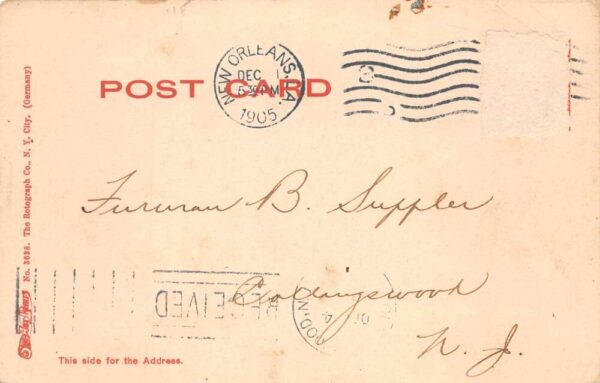 POST CARD
NEW ORLEANS, LA.
DEC 1
5 30 PM
1905
Furman B. Suppler
Collingswood
N. J.
RECEIVED
No. 3638. The Rotograph Co., N. Y. City. (Germany)
This side for the Address.